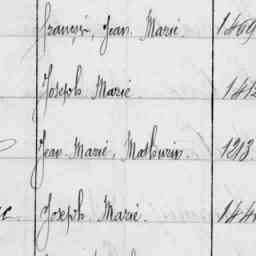 françois, Jean Marie 1469
Joseph Marie
Jean Marie, Mathurin 1213
Joseph Marie.